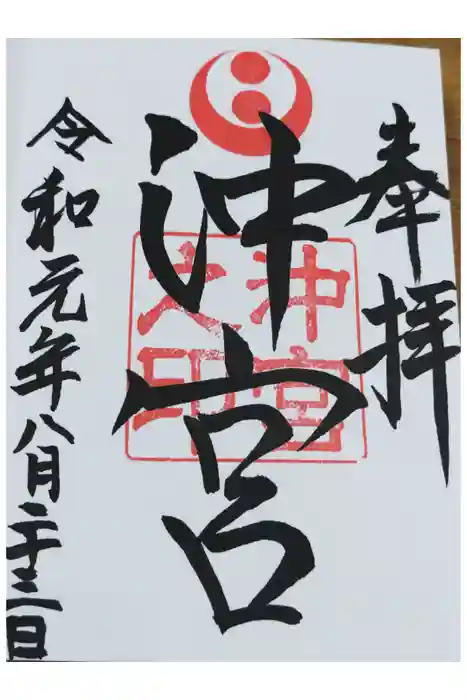 奉拝
沖宮
沖宮
之印
令和元年八月二十三日